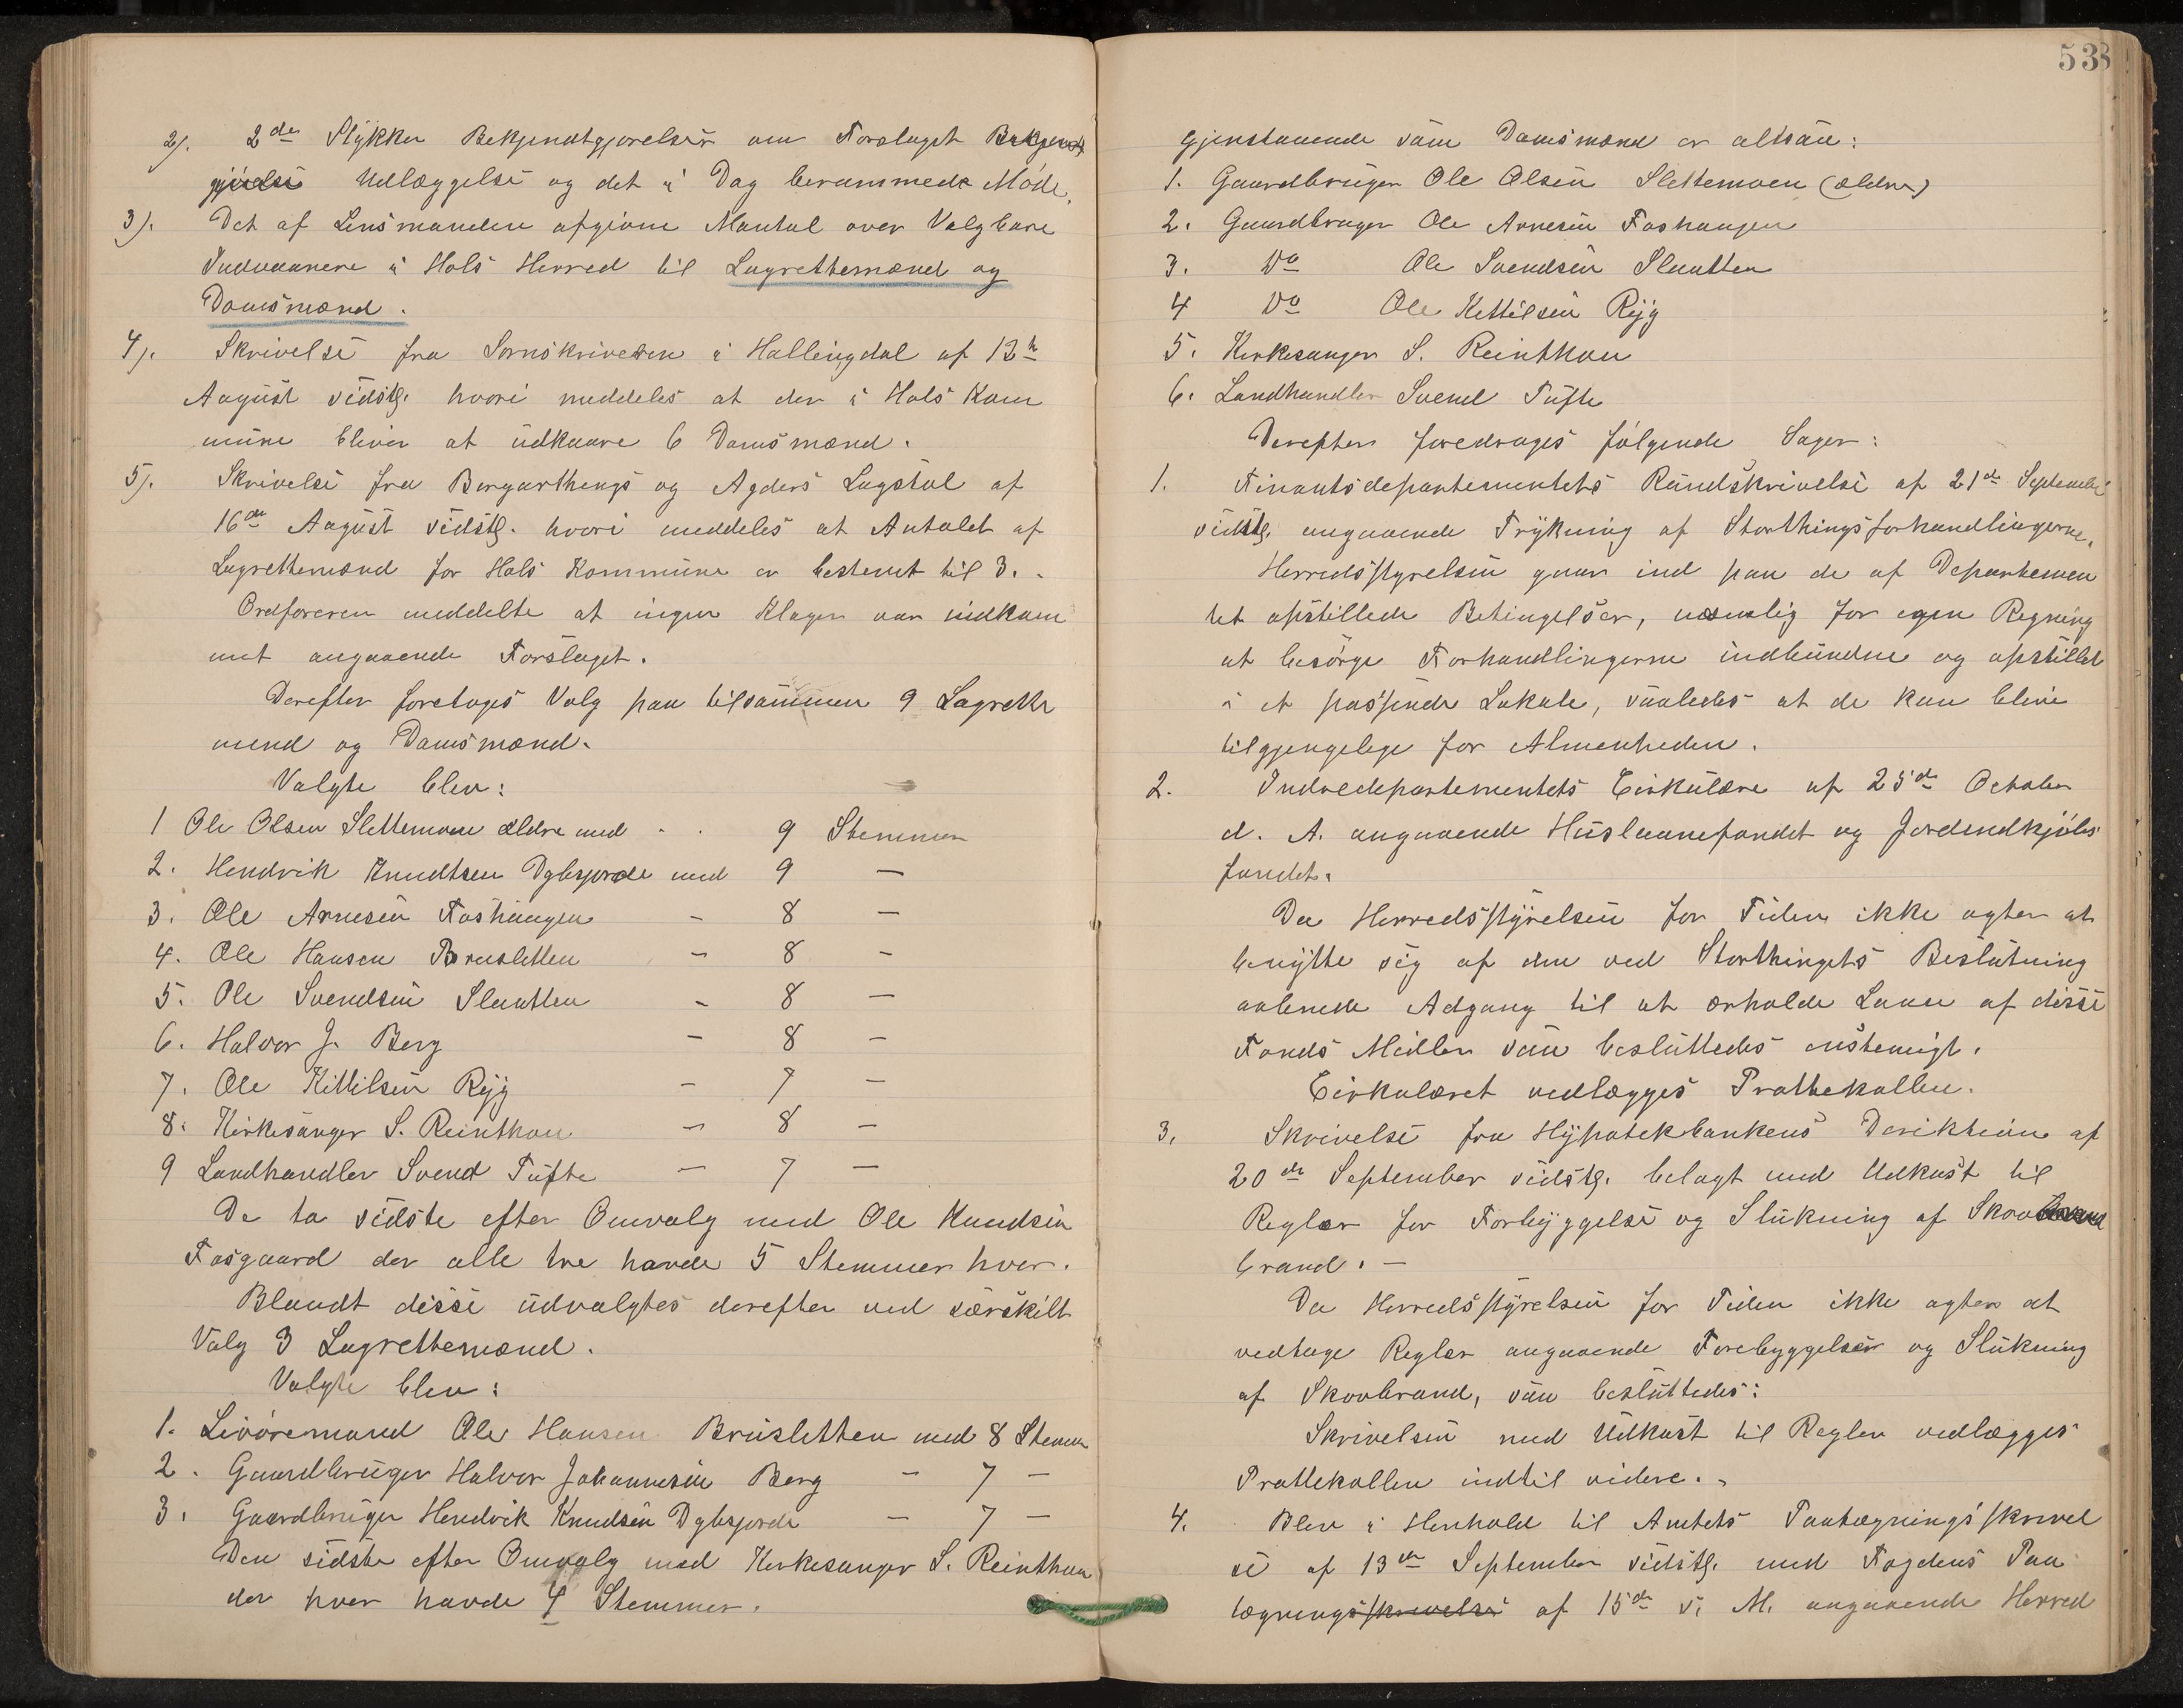 2). 2de Stykker Bekjendtgjørelser om Forslaget Bekjendt
gjørelse Udlæggelse og det i Dag berammede Møde.
3). Det af Lensmanden afgivne Mantal over Valgbare
Indvaanere i Hols Herred til Lagrettemænd og
Domsmænd.
4). Skrivelse fra Sorenskriveren i Hallingdal af 12te
August sidstl. hvori meddeles at der i Hols Kom
mune bliver at udkaare 6 Domsmænd.
5). Skrivelse fra Borgarthings og Agders Lagstol af
16de August sidstl. hvori meddeles at Antalet af
Lagrettemænd for Hols Kommune er bestemt til 3.
Ordføreren meddelte at ingen Klager var indkom
met angaaende Forslaget.
Derefter foretoges Valg paa tilsammen 9 Lagrette
mænd og Domsmænd.
Valgte blev:
1 Ole Olsen Slettemoen ældre med - . 9 Stemmer
2. Hendrik Knudtsen Dybsjorde med 9 —
3. Ole Arnesen Foshaugen - 8 —
4. Ole Hansen Brusletten - 8 -
5. Ole Svendsen Slaatten - 8 —
6. Halvor J. Berg - 8 -
7. Ole Kittilsen Ryg - 7 —
8. Kirkesanger S. Reinthon - 8 —
9 Landhandler Svend Tufte — 7 —
De to sidste efter Omvalg med Ole Knudsen
Fosgaard der alle tre havde 5 Stemmer hver.
Blandt disse udvalgtes derefter ved særskilt
Valg 3 Lagrettemænd.
Valgte blev:
1. Livøremand Ole Hansen Brusletten med 8 Stemm
2. Gaardbruger Halvor Johannesen Berg - 7 —
3. Gaardbruger Hendrik Knudsen Dybsjorde — 7 —
Den sidste efter Omvalg med Kirkesanger S. Reinthon
der hver havde 4 Stemmer.
538
Gjenstaaende som Domsmænd er altsaa:
1. Gaardbruger Ole Olsen Slettemoen (ældre)
2. Gaardbruger Ole Arnesen Foshaugen
3. Do Ole Svendsen Slaatten
4 Do Ole Kettilsen Ryg
5. Kirkesanger S. Reinthon
6. Landhandler Svend Tufte
Derefter foredroges følgende Sager:
1. Finantsdepartementets Rundskrivelse af 21de September
sidstl. angaaende Trykning af Storthingsforhandlingerne.
Herredsstyrelsen gaar ind paa de af Departemen
tet opstillede Betingelser, næmlig for egen Regning
at besørge Forhandlingerne indbundne og opstillet
i et passende Lokale, saaledes at de kan blive
tilgjengelige for Almenheden.
2. Indredepartementets Cirkulære af 25de October
d. A. angaaende Huslaanefondet og Jordindkjøbs
fondet.
Da Herredsstyrelsen for Tiden ikke agter at
benytte sig af den ved Storthingets Beslutning
aabnede Adgang til at erholde Laan af disse
Fonds Midler saa besluttedes enstemigt.
Cirkulæret vedlægges Prottekollen.
3. Skrivelse fra Hypotekbankens Direktion af
20de September sidstl. belagt med Udkast til
Regler for Forbyggelse og Slukning af Skov
brand. —
Da Herredsstyrelsen for Tiden ikke agter at
vedtage Regler angaaende Forebyggelser og Slukning
af Skovbrand, saa besluttedes:
Skrivelsen med Udkast til Regler vedlægges
Prottekollen indtil videre.
4. Blev i Henhold til Amtets Paategningsskrivel
se af 13de September sidstl. med Fogdens Paa
tegningsskrivelse af 15de s. M. angaaende Herred